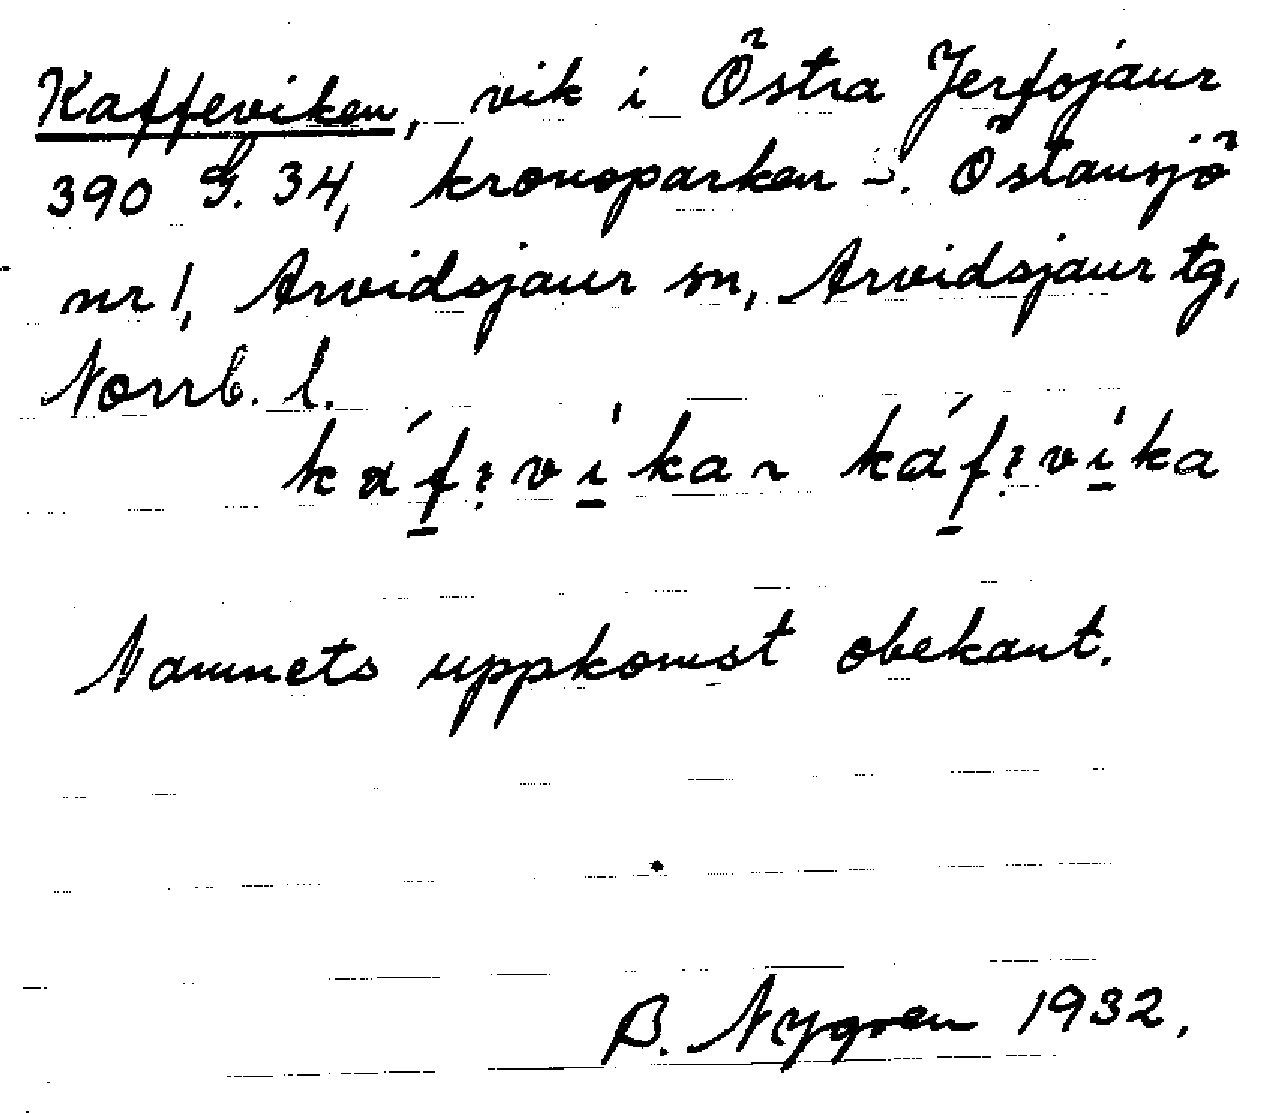 Kaffeviken, vik i Östra Jerfojaur
390 G. 34, kronoparken Ö. Östansjö
nr 1, Arvidsjaur sn, Arvidsjaur tg,
Norrb. l.
káf:víka ~ káf:víka
Namnets uppkomst obekant.
B. Nygren 1932.